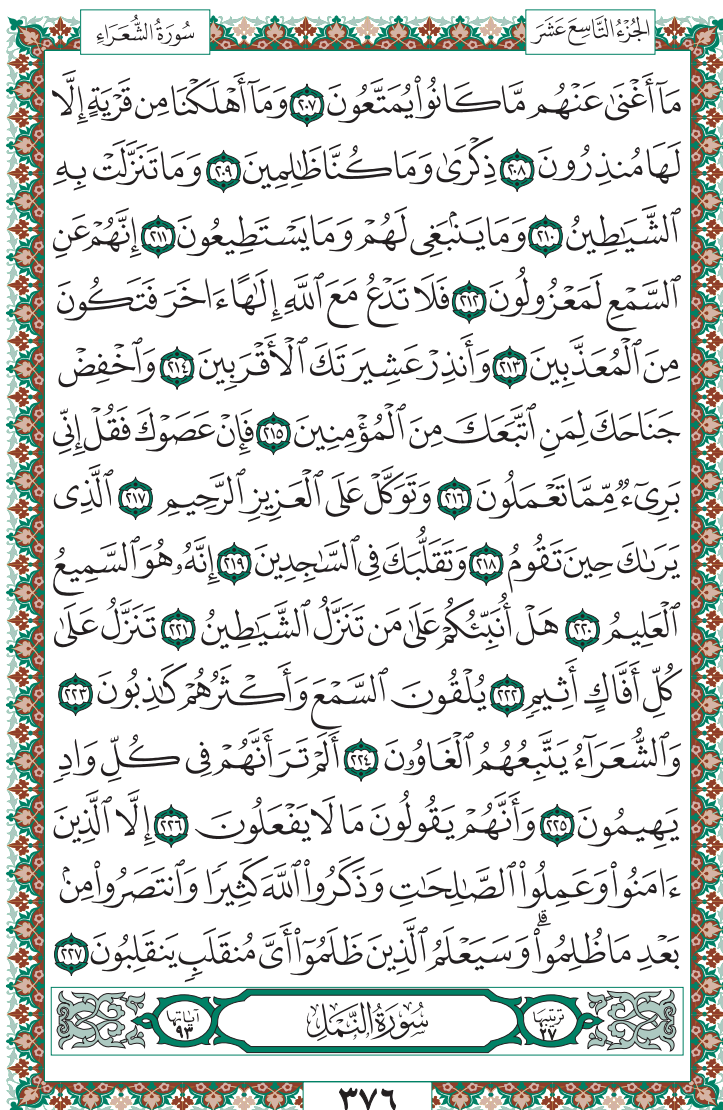 الجُزْءُ التَّاسِعَ عَشَرَ سُورَةُ الشُّعَرَاءِ
مَآ أَغْنَىٰ عَنْهُم مَّا كَانُوا۟ يُمَتَّعُونَ ٢٠٧ وَمَآ أَهْلَكْنَا مِن قَرْيَةٍ إِلَّا
لَهَا مُنذِرُونَ ٢٠٨ ذِكْرَىٰ وَمَا كُنَّا ظَٰلِمِينَ ٢٠٩ وَمَا تَنَزَّلَتْ بِهِ
ٱلشَّيَٰطِينُ ٢١٠ وَمَا يَنۢبَغِى لَهُمْ وَمَا يَسْتَطِيعُونَ ٢١١ إِنَّهُمْ عَنِ
ٱلسَّمْعِ لَمَعْزُولُونَ ٢١٢ فَلَا تَدْعُ مَعَ ٱللَّهِ إِلَٰهًا ءَاخَرَ فَتَكُونَ
مِنَ ٱلْمُعَذَّبِينَ ٢١٣ وَأَنذِرْ عَشِيرَتَكَ ٱلْأَقْرَبِينَ ٢١٤ وَٱخْفِضْ
جَنَاحَكَ لِمَنِ ٱتَّبَعَكَ مِنَ ٱلْمُؤْمِنِينَ ٢١٥ فَإِنْ عَصَوْكَ فَقُلْ إِنِّى
بَرِىٓءٌ مِّمَّا تَعْمَلُونَ ٢١٦ وَتَوَكَّلْ عَلَى ٱلْعَزِيزِ ٱلرَّحِيمِ ٢١٧ ٱلَّذِى
يَرَىٰكَ حِينَ تَقُومُ ٢١٨ وَتَقَلُّبَكَ فِى ٱلسَّٰجِدِينَ ٢١٩ إِنَّهُۥ هُوَ ٱلسَّمِيعُ
ٱلْعَلِيمُ ٢٢٠ هَلْ أُنَبِّئُكُمْ عَلَىٰ مَن تَنَزَّلُ ٱلشَّيَٰطِينُ ٢٢١ تَنَزَّلُ عَلَىٰ
كُلِّ أَفَّاكٍ أَثِيمٍ ٢٢٢ يُلْقُونَ ٱلسَّمْعَ وَأَكْثَرُهُمْ كَٰذِبُونَ ٢٢٣
وَٱلشُّعَرَآءُ يَتَّبِعُهُمُ ٱلْغَاوُۥنَ ٢٢٤ أَلَمْ تَرَ أَنَّهُمْ فِى كُلِّ وَادٍ
يَهِيمُونَ ٢٢٥ وَأَنَّهُمْ يَقُولُونَ مَا لَا يَفْعَلُونَ ٢٢٦ إِلَّا ٱلَّذِينَ
ءَامَنُوا۟ وَعَمِلُوا۟ ٱلصَّٰلِحَٰتِ وَذَكَرُوا۟ ٱللَّهَ كَثِيرًا وَٱنتَصَرُوا۟ مِنۢ
بَعْدِ مَا ظُلِمُوا۟ ۗ وَسَيَعْلَمُ ٱلَّذِينَ ظَلَمُوٓا۟ أَىَّ مُنقَلَبٍ يَنقَلِبُونَ ٢٢٧
ترتيبها ٢٧ سُورَةُ النَّمْلِ آياتها ٩٣
٣٧٦